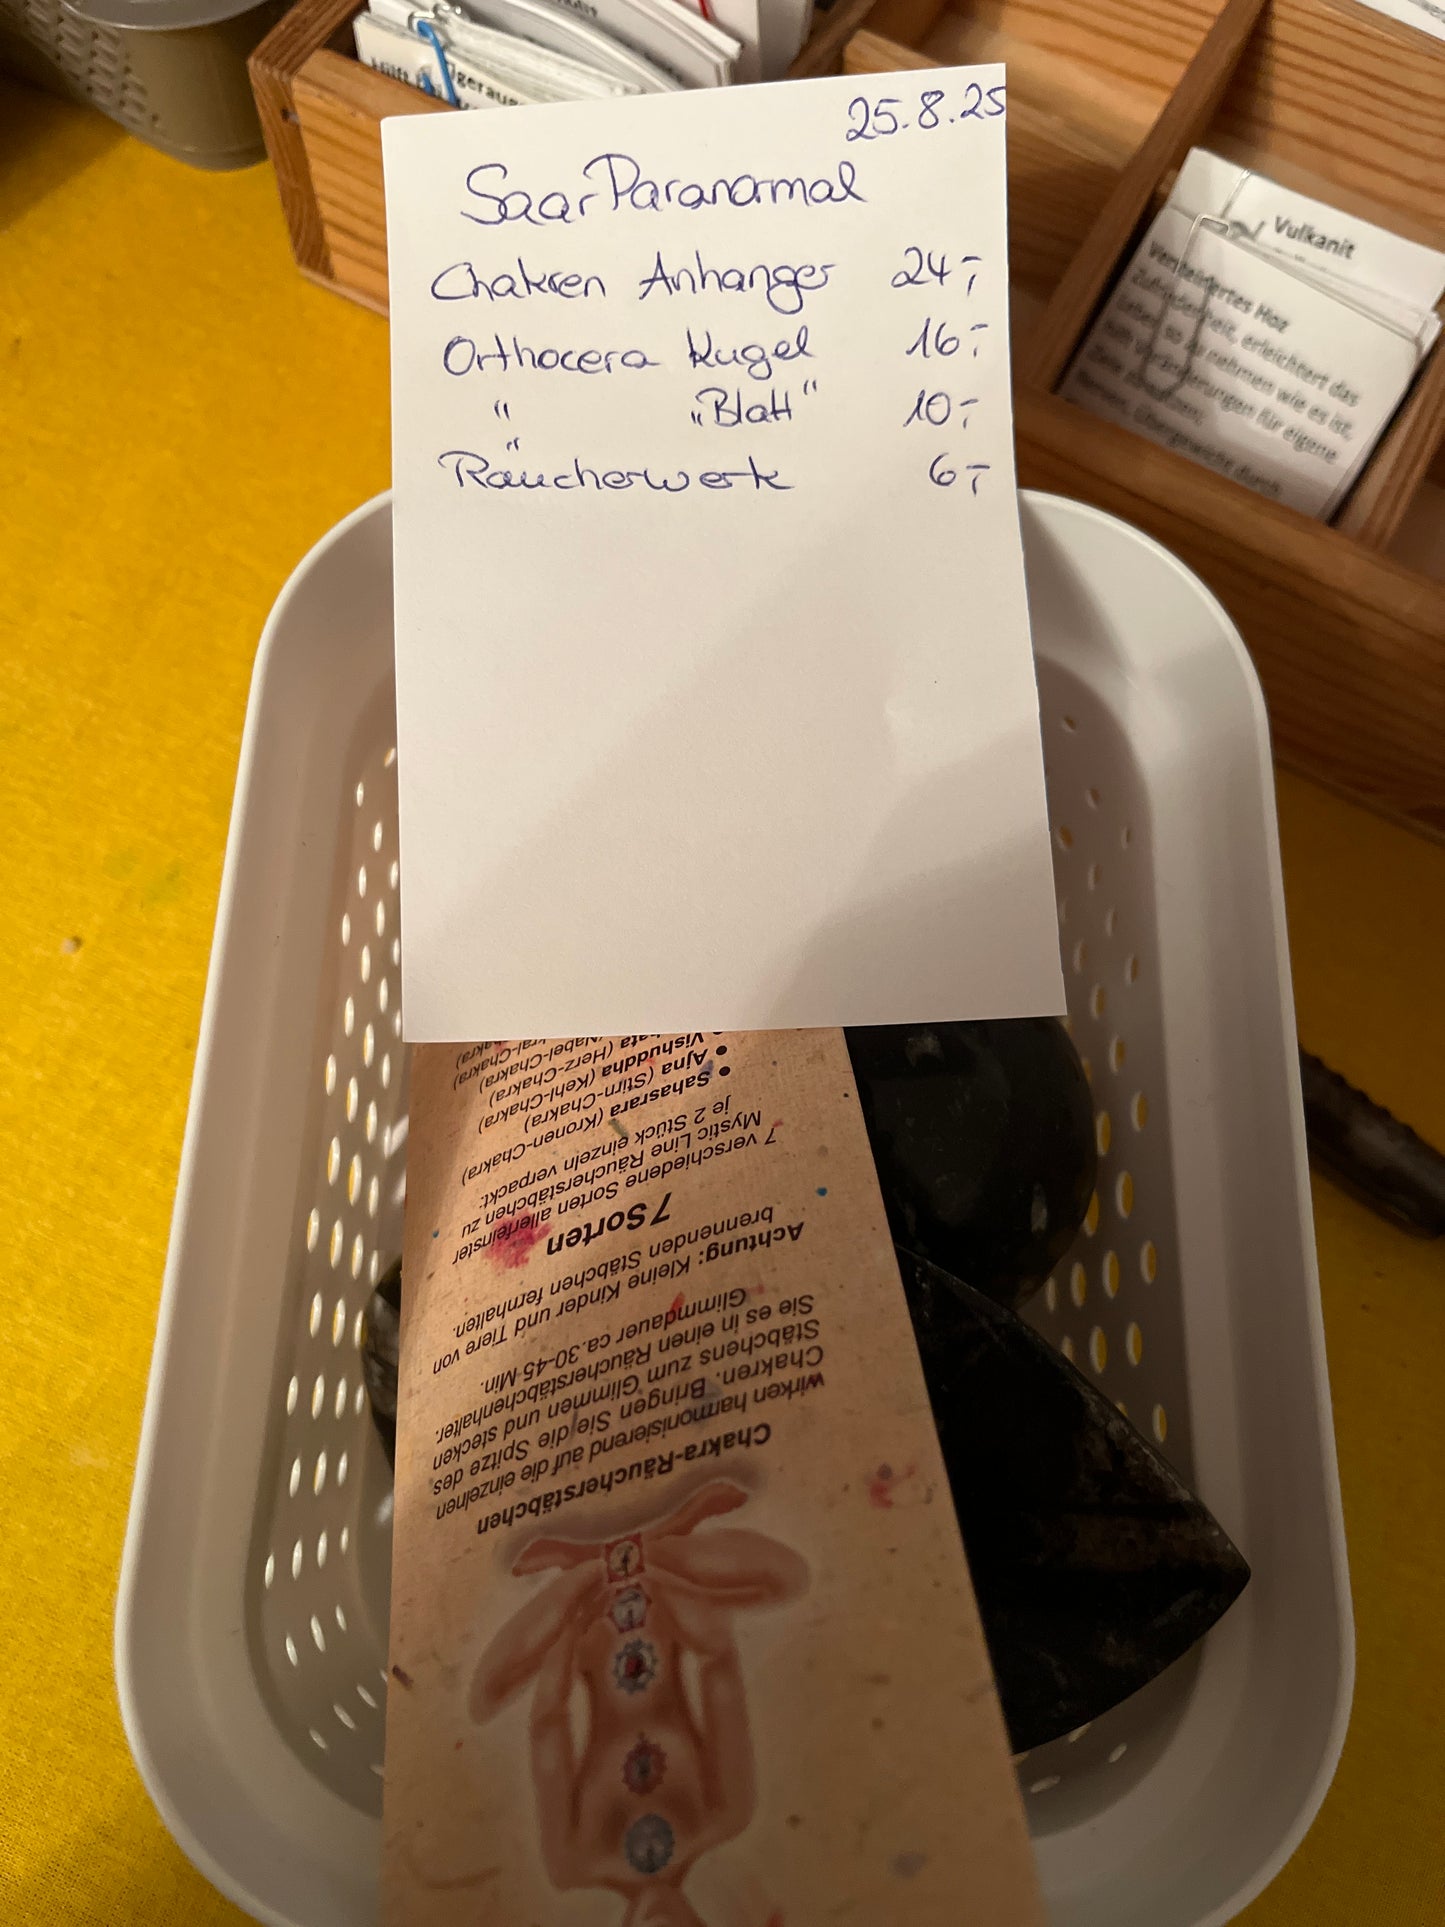 25.8.25
SaarParanormal
Chakren Anhänger 24,-
Orthocera Kugel 16,-
" „Blatt“ 10,-
Räucherwerk 6,-
Vulkanit
Zufriedenheit, erleichtert das
Leben so zu nehmen wie es ist,
für eigene
Chakra-Räucherstäbchen
wirken harmonisierend auf die einzelnen
Chakren. Bringen Sie die Spitze des
Stäbchens zum Glimmen und stecken
Sie es in einen Räucherstäbchenhalter.
Glimmdauer ca.30-45 Min.
Achtung: Kleine Kinder und Tiere von
brennenden Stäbchen fernhalten.
7 Sorten
7 verschiedene Sorten allerfeinster
Mystic Line Räucherstäbchen zu
je 2 Stück einzeln verpackt:
• Sahasrara (Kronen-Chakra)
• Ajna (Stirn-Chakra)
• Vishuddha (Kehl-Chakra)
(Herz-Chakra)
(Nabel-Chakra)